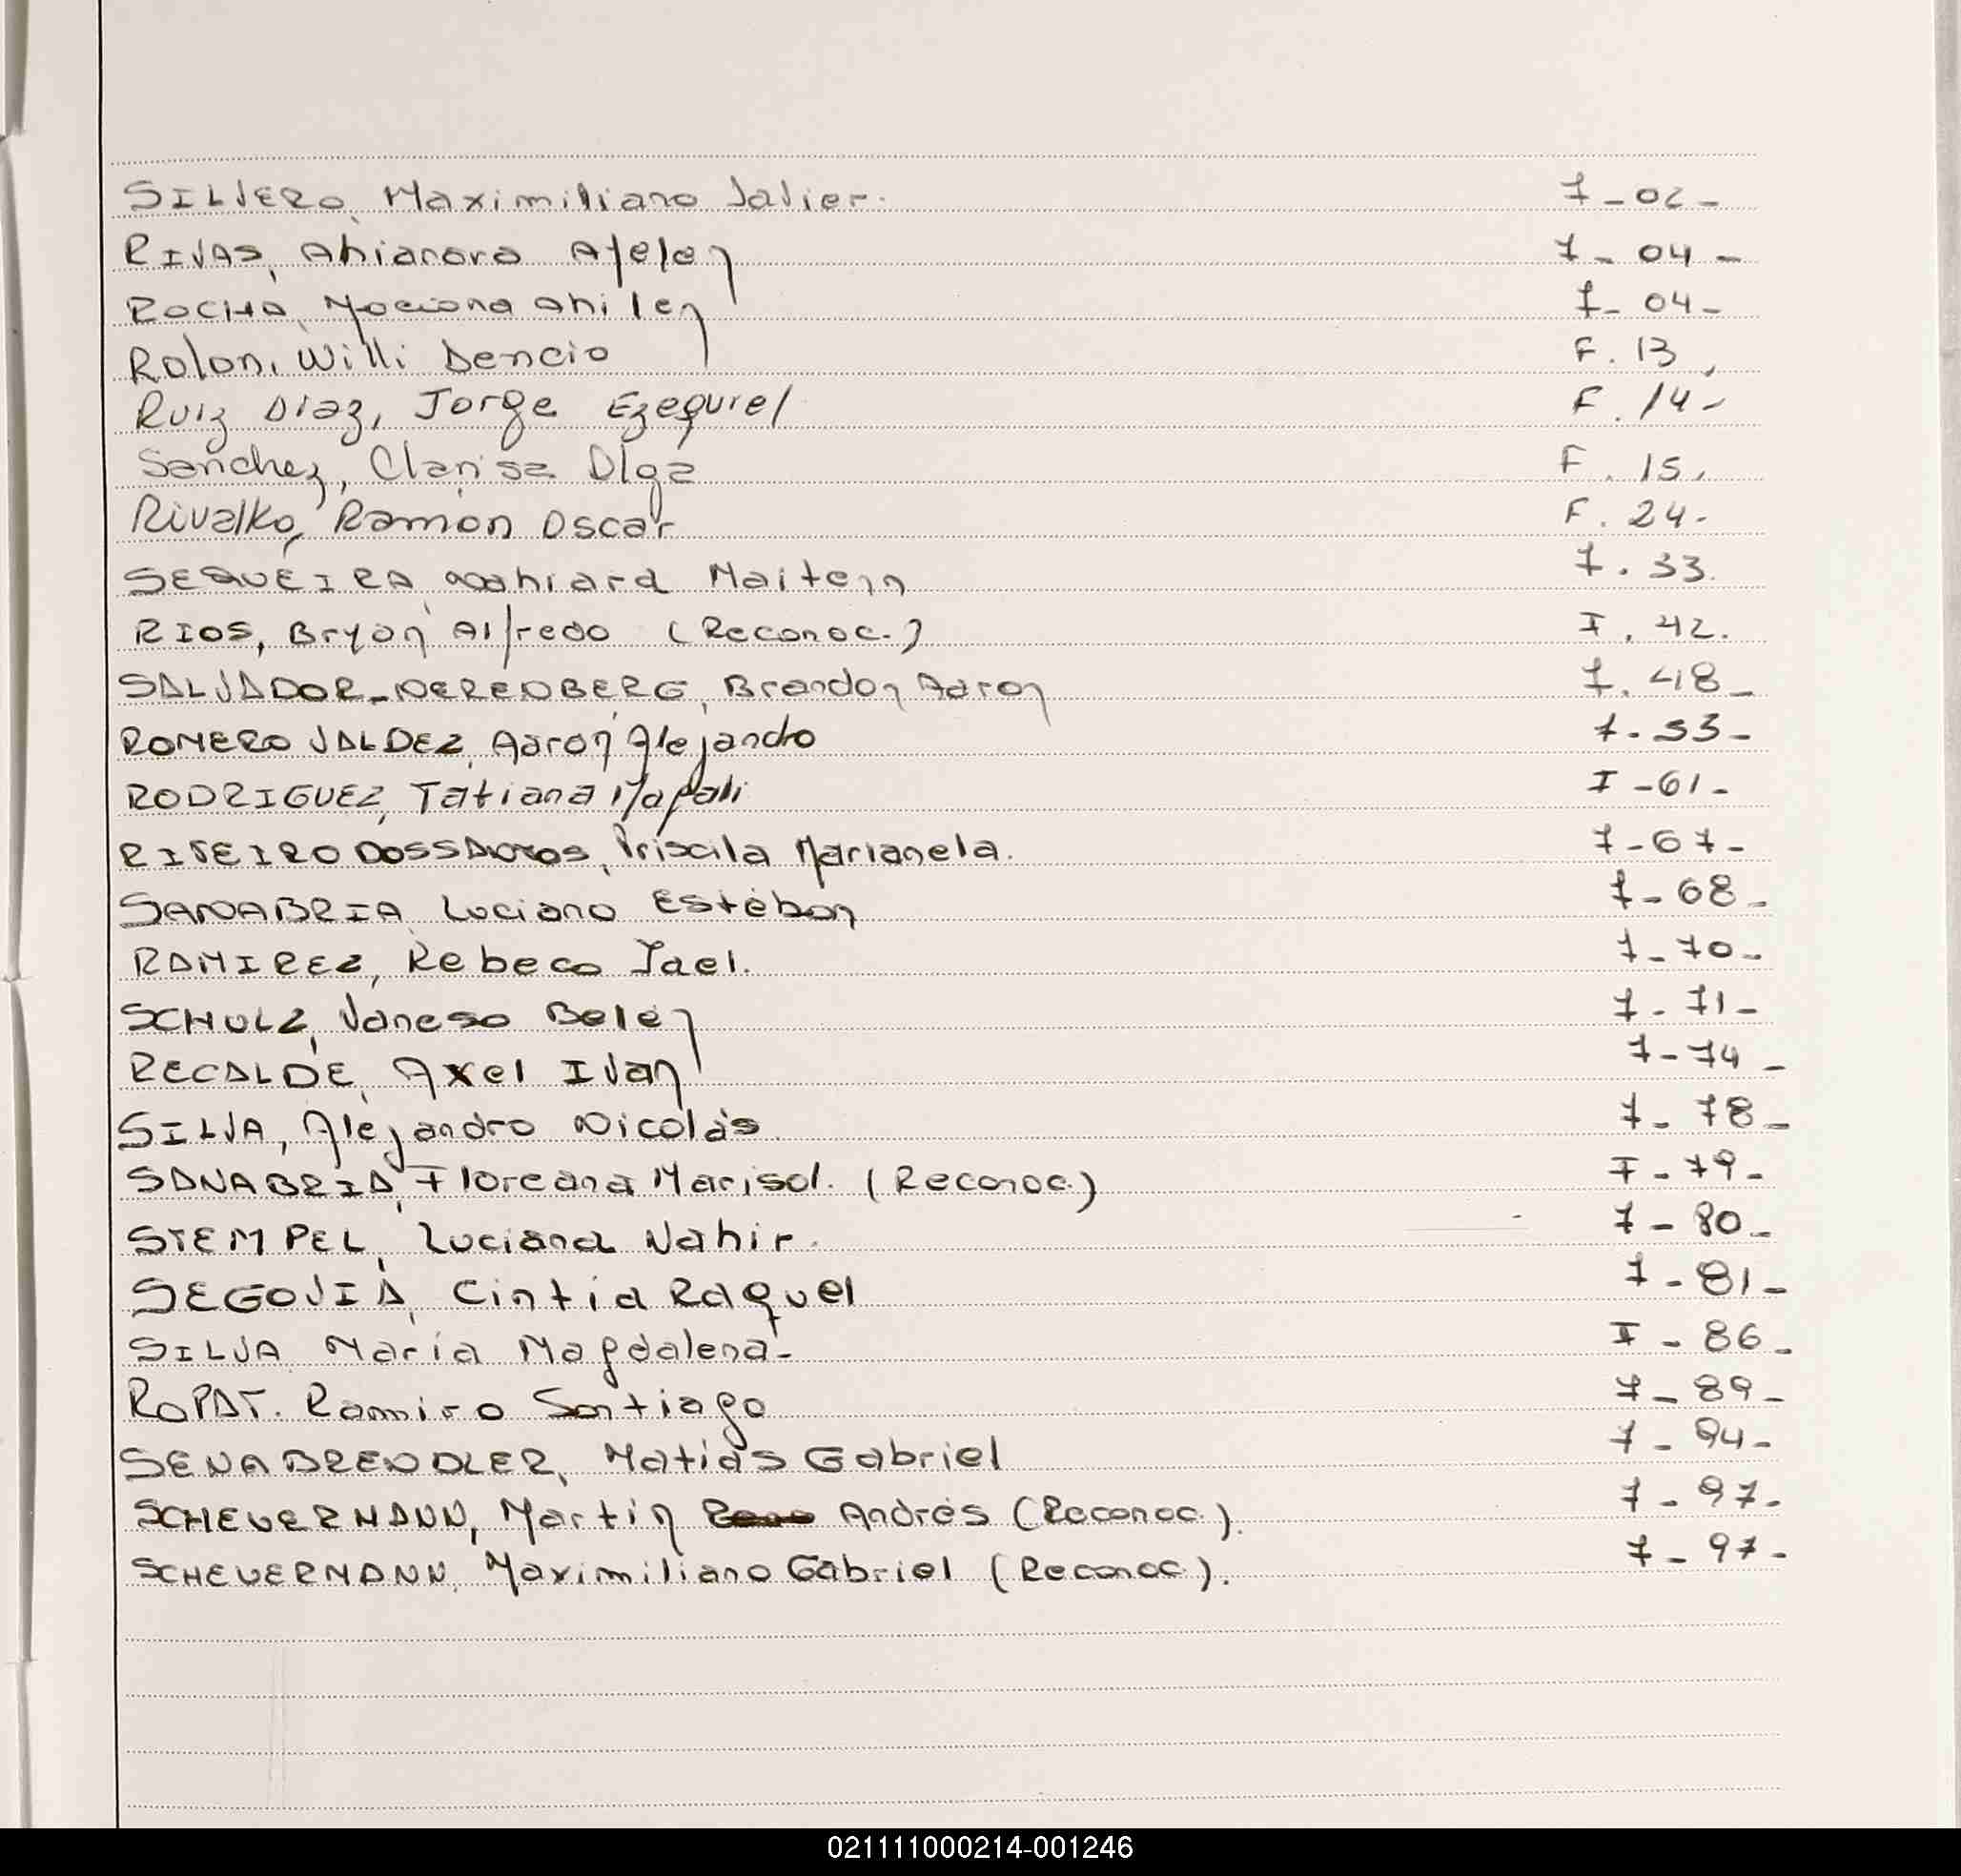 SILVERO, Maximiliano Javier. F-02-
RIVAS, Ahianara Ayelen F-04-
ROCHA, Mociona Ahilen F-04-
Rolon, Willi Dencio F. 13,
Ruiz Diaz, Jorge Ezequiel F. 14-
Sanchez, Clarisa Olga F. 15,
Rivalko, Ramón Oscar F. 24.
SEQUEIRA, Maitenn F. 33.
RIOS, Bryan Alfredo (Reconoc.) F. 42.
SALVADOR-NERENBERG, Brandon Aaron F. 48-
ROMERO VALDEZ, Aaron Alejandro F. 53-
RODRIGUEZ, Tatiana Magali F-61-
RIBEIRO DOSSANTOS, Priscila Marianela. F-67-
SANABRIA, Luciano Estéban F-68-
RAMIREZ, Rebeca Jael. F-70-
SCHULZ, Vanesa Belén F-71-
RECALDE, Axel Ivan F-74-
SILVA, Alejandro Nicolás F-78-
SANABRIA, Floreana Marisol. (Reconoc.) F-79-
STEMPEL, Luciana Nahir. F-80-
SEGOVIA, Cintia Raquel F-81-
SILVA María Magdalena- F-86-
ROPAT. Ramiro Santiago F-89-
SENABRENDLER, Matías Gabriel F-94-
SCHEUERMANN, Martín Andrés (Reconoc.). F-97-
SCHEUERMANN, Maximiliano Gabriel (Reconoc.). F-97-
021111000214-001246